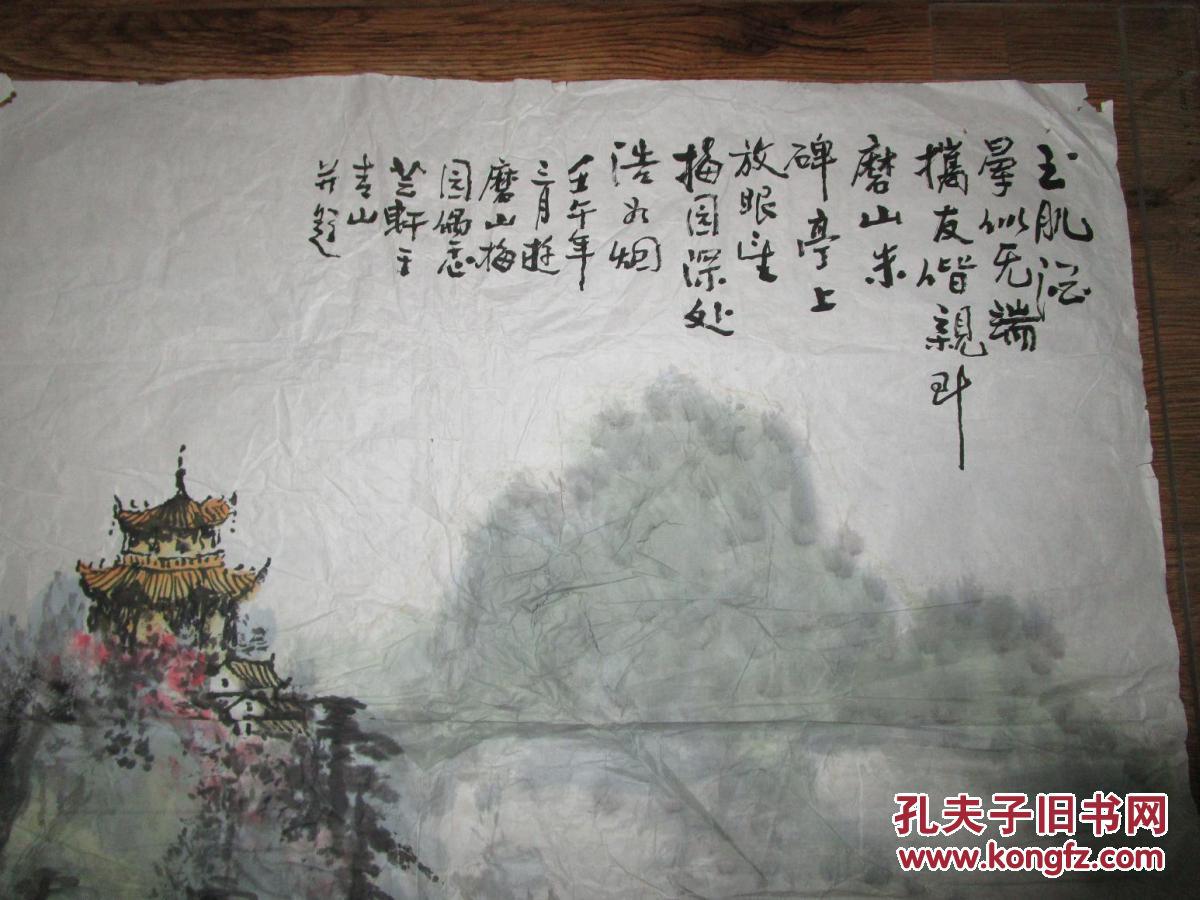 玉肌
晕似无端
攜友偕親到
磨山朱
碑亭上
放眼望
梅园深处
浩如烟
壬午年
三月遊
磨山梅
园偶
軒主
青山
并题
孔夫子旧书网
www.kongfz.com